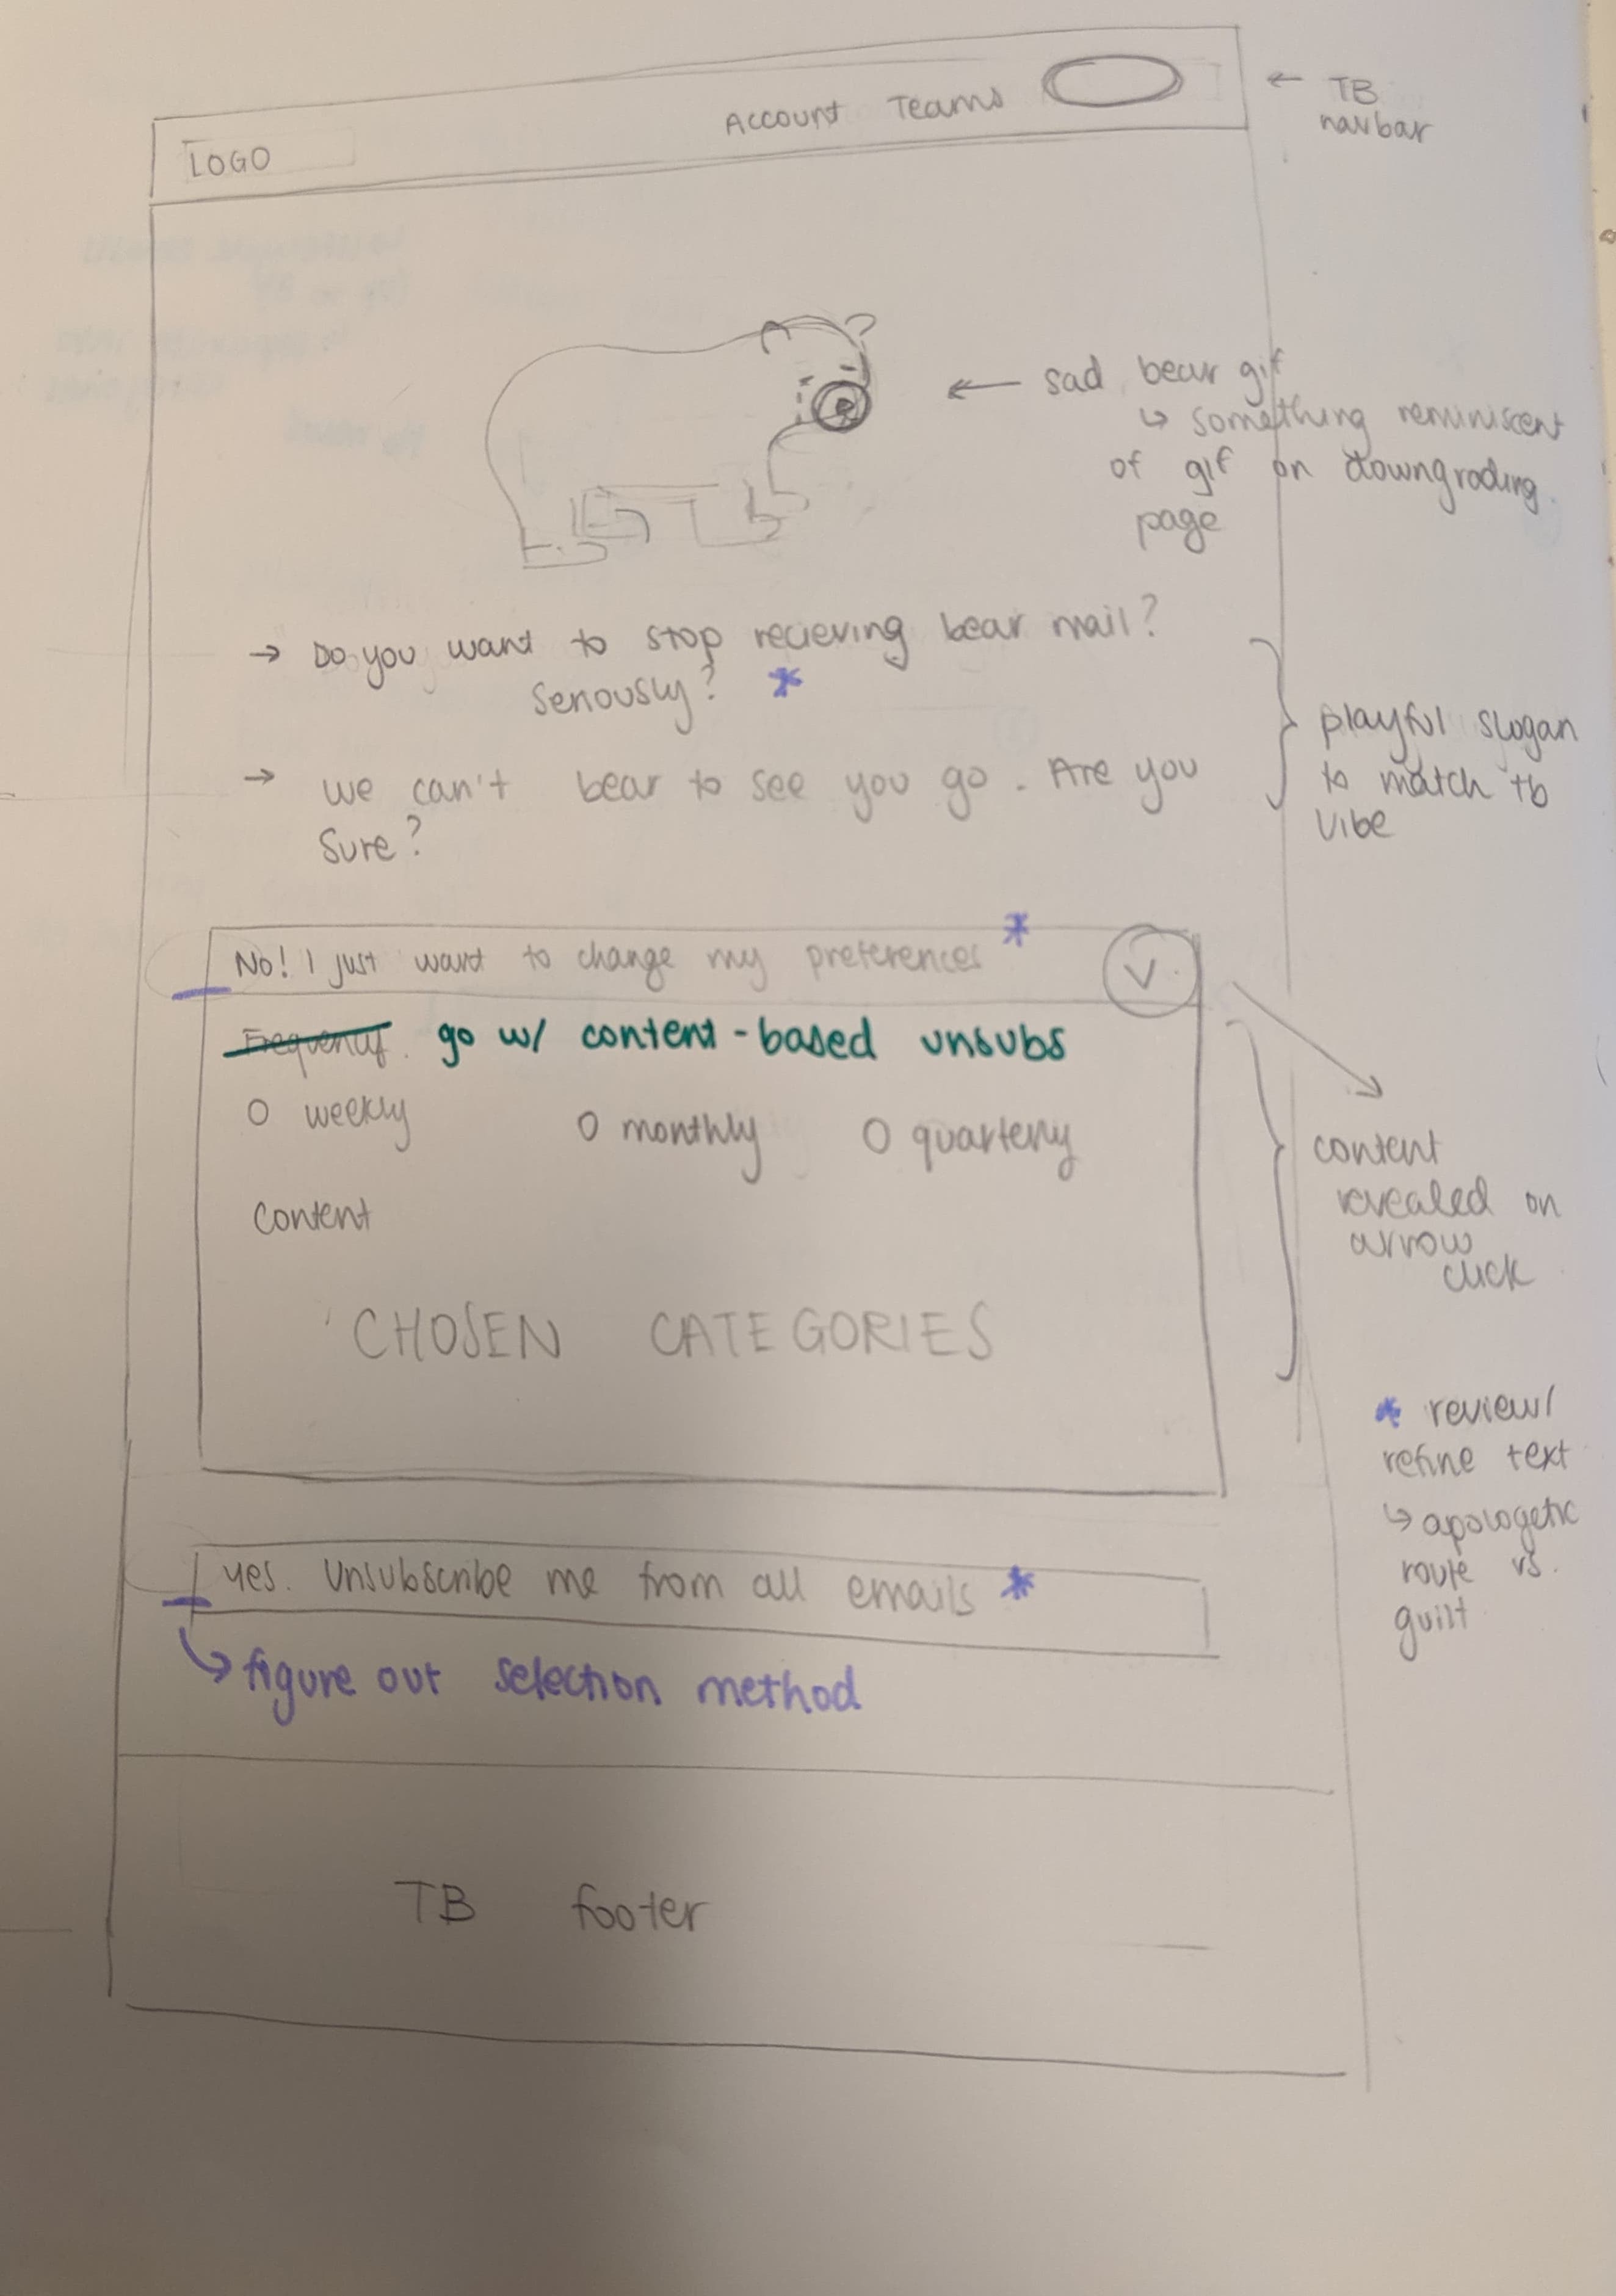 LOGO
Account Teams
← TB
navbar
← sad bear gif
↳ something reminiscent
of gif on downgrading
page
→ Do you want to stop recieving bear mail?
Seriously? *
→ we can't bear to see you go. Are you
sure?
playful slogan
to match tb
vibe
No! I just want to change my preferences *
Frequency. go w/ content-based unsubs
O weekly O monthly O quarterly
content
CHOSEN CATEGORIES
content
revealed on
arrow
click
* review/
refine text
↳ apologetic
route vs.
guilt
yes. Unsubscribe me from all emails *
↳ figure out selection method
TB footer